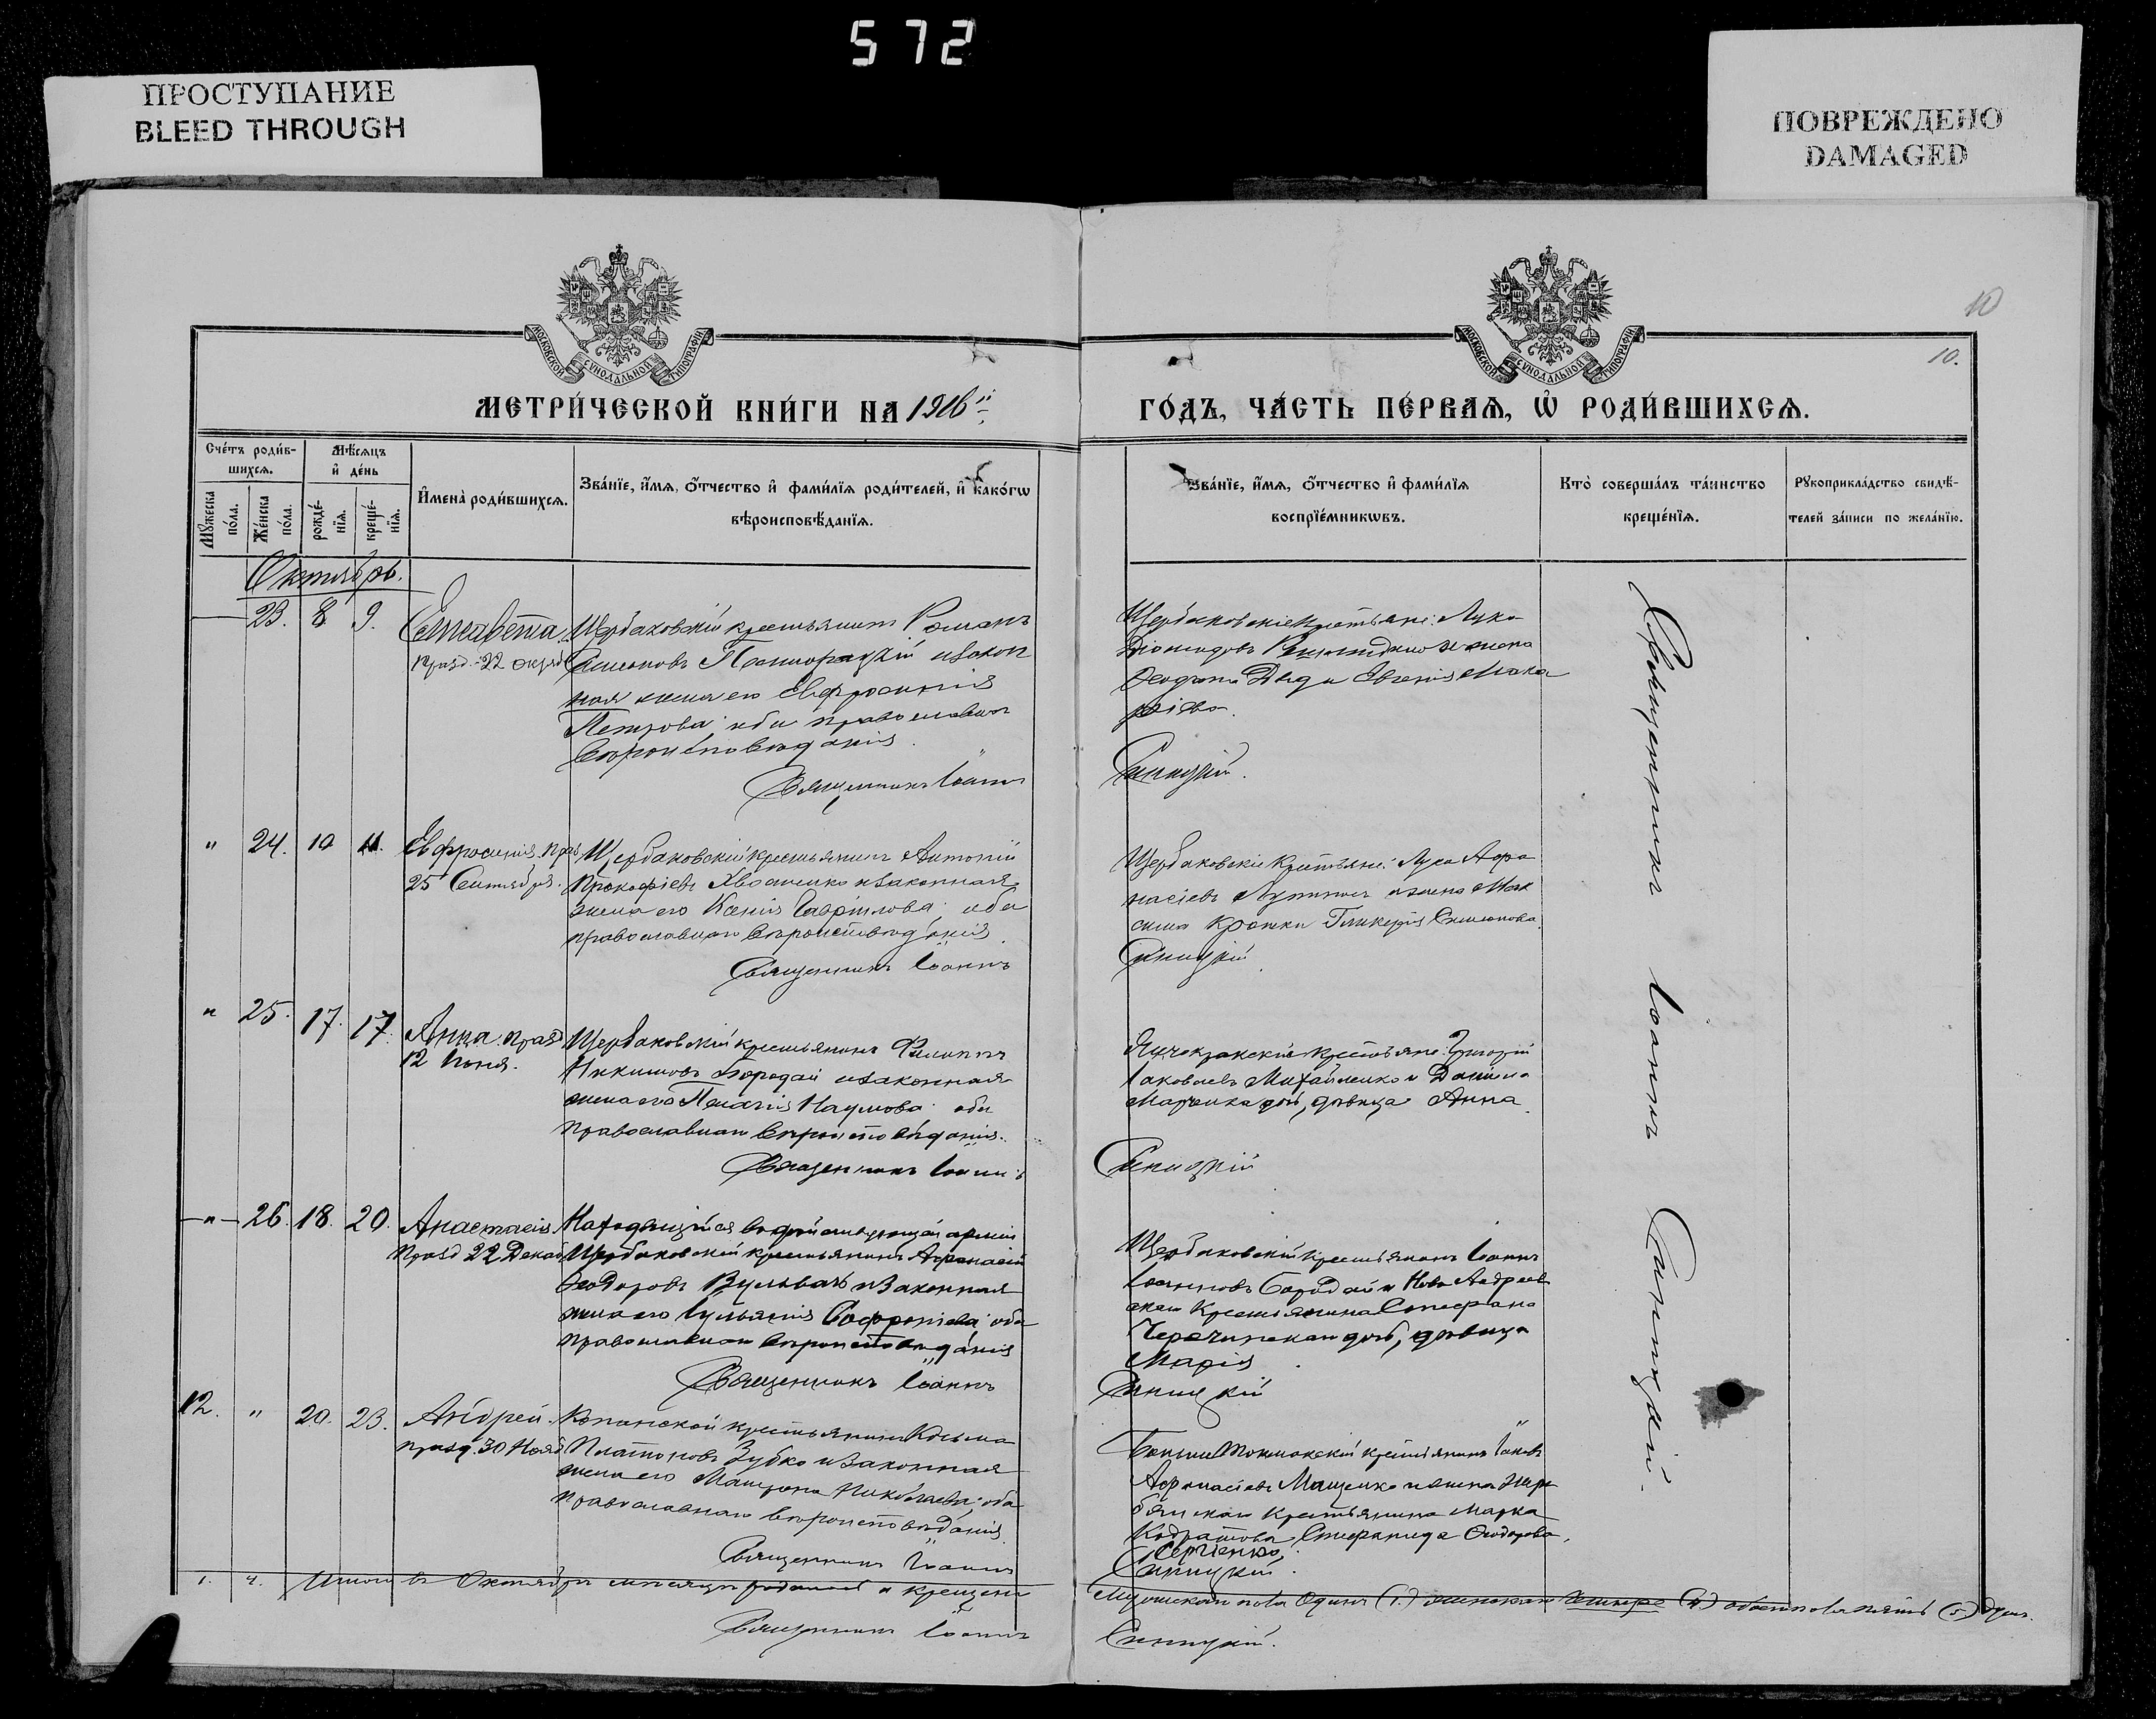 572
ПРОСТУПАНИЕ
BLEED THROUGH
ПОВРЕЖДЕНО
DAMAGED
10
10.
МОСКОВСКОЙ СѴНОДАЛЬНОЙ ТИПОГРАФІИ
МОСКОВСКОЙ СѴНОДАЛЬНОЙ ТИПОГРАФІИ
МЕТРИ́ЧЕСКОЙ КНИ́ГИ НА 1916й
ГО́ДЪ, ЧА́СТЬ ПЕ́РВАѦ, Ѡ҆ РОДИ́ВШИХСѦ.
Сче́тъ роди́в-
шихсѧ.
Мѣ́сѧцъ
и҆ де́нь
Мꙋ́жеска по́ла.
Же́нска по́ла.
рожде́-
нїѧ.
креще́-
нїѧ.
И҆мена̀ роди́вшихсѧ.
Зва́нїе, и҆́мѧ, ѻ҆́тчество и҆ фами́лїѧ роди́телей, и҆ како́гѡ
вѣроисповѣ́данїѧ.
Зва́нїе, и҆́мѧ, ѻ҆́тчество и҆ фами́лїѧ
воспрїе́мникѡвъ.
Кто̀ соверша́лъ та́инство
креще́нїѧ.
Рꙋкоприкла́дство свидѣ́-
телей за́писи по жела́нїю.
Октябрь.
23. 8 9. Елисавета
празд. 22 октяб
Щербаковскій крестьянинъ Романъ
Симеоновъ и закон
ная жена его Евфросинія
Петрова; оба православнаго
вѣроисповѣданія.
Священникъ Іоаннъ
Щербаковскіе крестьяне: Лука
Діомидовъ и жена
Евгенія Мака
рієва.
Синицкій.
" 24. 10 11. Евфросинія, праз
25 Сентября.
Щербаковскій крестьянинъ Антоній
Прокофіевъ Хвостенко и законная
жена его Ксенія Гаврілова; оба
православнаго вѣроисповѣданія.
Священникъ Іоаннъ
Щербаковскіе крестьяне: Лука Афа
насіевъ и жена Мак
сима Гликерія Симеонова.
Синицкій
" 25. 17. 17. Анна. празд
12 Іюня.
Щербаковскій крестьянинъ Филиппъ
Бородай и законная
жена его Пелагія Наумова; оба
православнаго вѣроисповѣданія.
Священникъ Іоаннъ
крестьяне: Григорій
Іаковлевъ Михайленко и Даніила
Марченка дочь, дѣвица Анна.
Синицкій
" 26. 18. 20. Анастасія
празд 22 Декаб
Находящійся въ дѣйствующей арміи
Щербаковскій крестьянинъ Афанасій
Феодоровъ и законная
жена его Іуліанія Софроніева; оба
православнаго вѣроисповѣданія
Священникъ Іоаннъ
Щербаковскій крестьянинъ Іоаннъ
Іоанновъ Бородай и Ново Андреев
скаго крестьянина Стефана
дочь, дѣвица
Марія
Синицкій
12. " 20. 23. Андрей.
празд. 30 Нояб
Копанской крестьянинъ Косьма
Платоновъ Зубко и законная
жена его Матрона Николаева; оба
православнаго вѣроисповѣданія
Священникъ Іоаннъ
Больше Токмакскій крестьянинъ Іаковъ
Афанасіевъ Мащенко и жена
крестьянина Марка
Кодратова Стефанида Феодорова
Сергіенко.
Синицкій.
Священникъ Іоаннъ Синицкій.
1. 4. Итого въ Октябрѣ мѣсяцѣ родилось и крещено
Мужескаго пола одинъ (1.) женскаго четыре (4.) обоего пола пять (5) душъ.
Священникъ Іоаннъ
Синицкій.